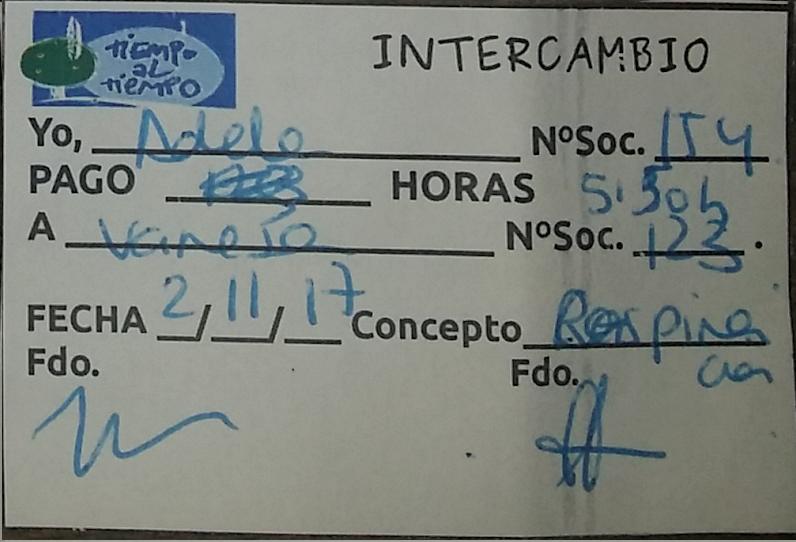 tiempo
al
tiempo
INTERCAMBIO
Yo, Adela NºSoc. 154
PAGO HORAS 5:30h
A Vanesa NºSoc. 123.
FECHA 2/11/17 Concepto Respira
Fdo. Fdo. cion